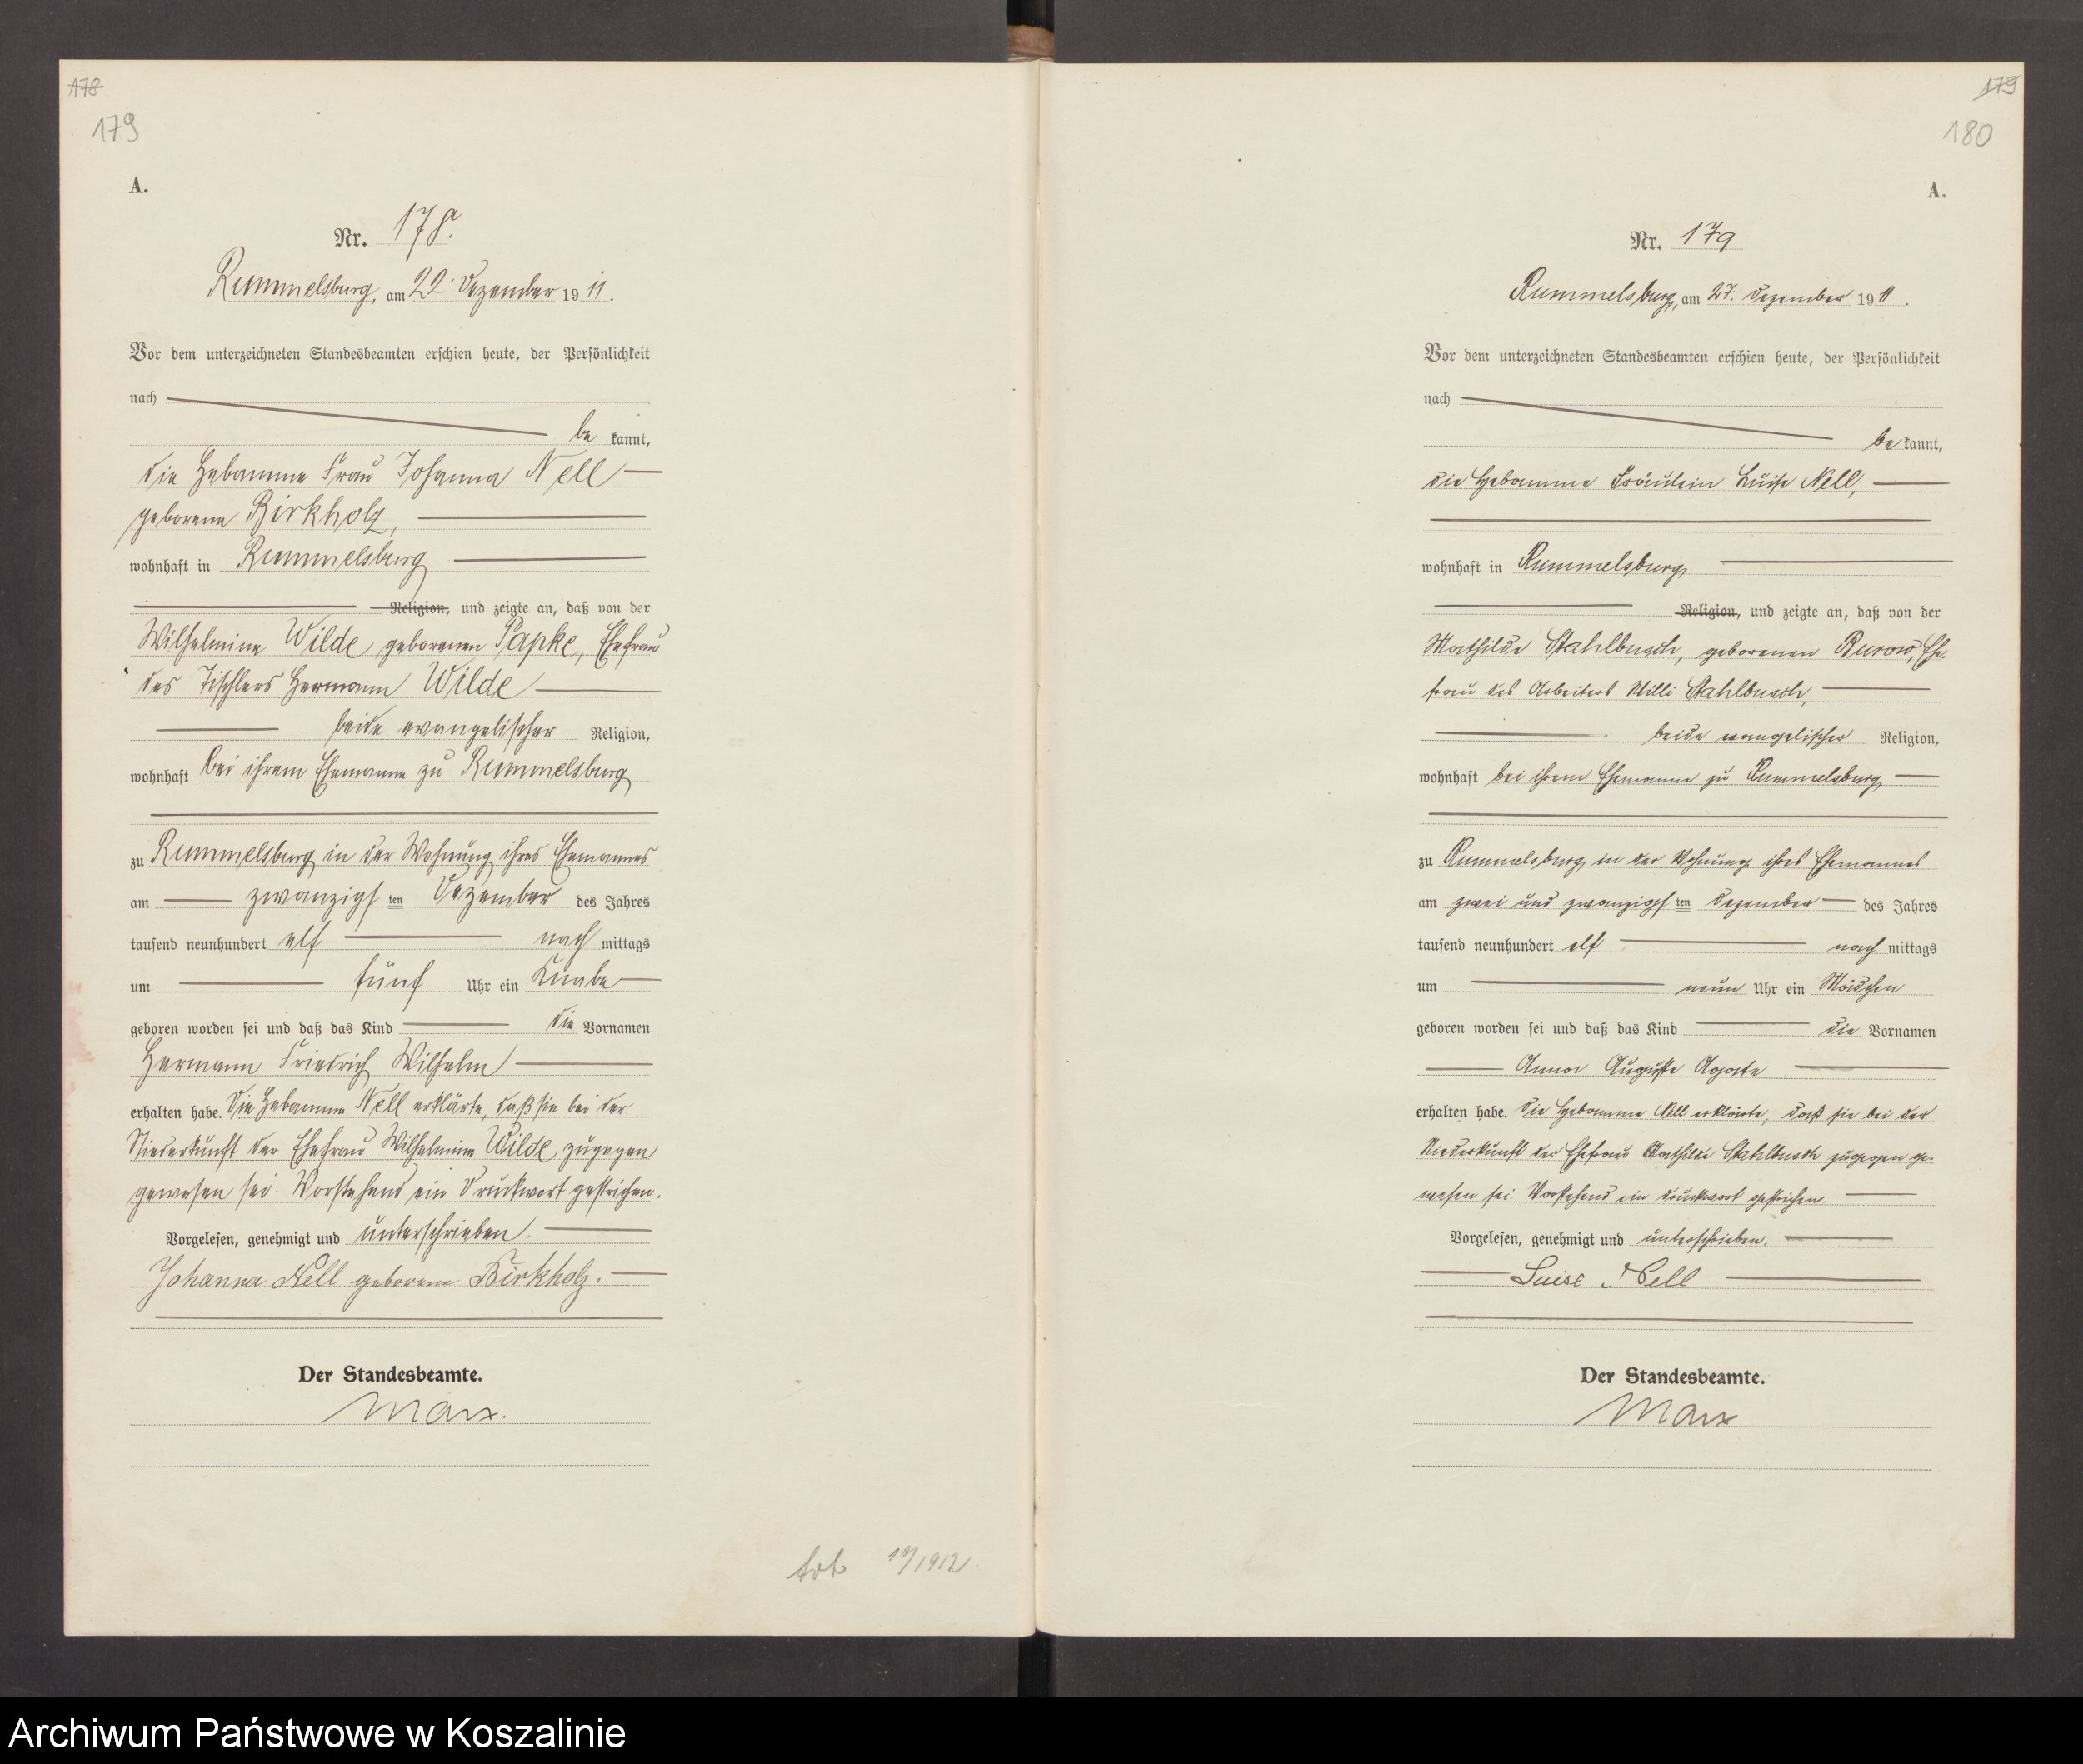 178
179
A.
Nr. 178.
Rummelsburg, am 22. Dezember 1911.
Vor dem unterzeichneten Standesbeamten erschien heute, der Persönlichkeit
nach
be kannt,
die Hebamme Frau Johanna Nell
geborene Birkholz,
wohnhaft in Rummelsburg
Religion, und zeigte an, daß von der
Wilhelmine Wilde, geborenen Papke, Ehefrau
des Tischlers Hermann Wilde
beide evangelischer Religion,
wohnhaft bei ihrem Ehemanne zu Rummelsburg
zu Rummelsburg in der Wohnung ihres Ehemannes
am zwanzigsten Dezember des Jahres
tausend neunhundert elf nach mittags
um fünf Uhr ein Knabe
geboren worden sei und daß das Kind die Vornamen
Hermann Friedrich Wilhelm
erhalten habe. Die Hebamme Nell erklärte, daß sie bei der
Niederkunft der Ehefrau Wilhelmine Wilde, zugegen
gewesen sei. Vorstehend ein Druckwort gestrichen.
Vorgelesen, genehmigt und unterschrieben.
Johanna Nell geborene Birkholz.
Der Standesbeamte.
Marx.
10/1912.
179
180
A.
Nr. 179
Rummelsburg, am 27. Dezember 1911.
Vor dem unterzeichneten Standesbeamten erschien heute, der Persönlichkeit
nach
be kannt,
die Hebamme Fräulein Luise Nell,
wohnhaft in Rummelsburg
Religion, und zeigte an, daß von der
Mathilde Stahlbusch, geborenen Burow, Ehe-
frau des Arbeiters Willi Stahlbusch,
beide evangelischer Religion,
wohnhaft bei ihrem Ehemanne zu Rummelsburg
zu Rummelsburg, in der Wohnung ihres Ehemannes
am zwei und zwanzigsten Dezember des Jahres
tausend neunhundert elf nach mittags
um neun Uhr ein Mädchen
geboren worden sei und daß das Kind die Vornamen
Anna Auguste Agathe
erhalten habe. Die Hebamme Nell erklärte, daß sie bei der
Niederkunft der Ehefrau Mathilde Stahlbusch zugegen ge-
wesen sei. Vorstehend ein Druckwort gestrichen.
Vorgelesen, genehmigt und unterschrieben.
Luise Nell
Der Standesbeamte.
Marx
Archiwum Państwowe w Koszalinie